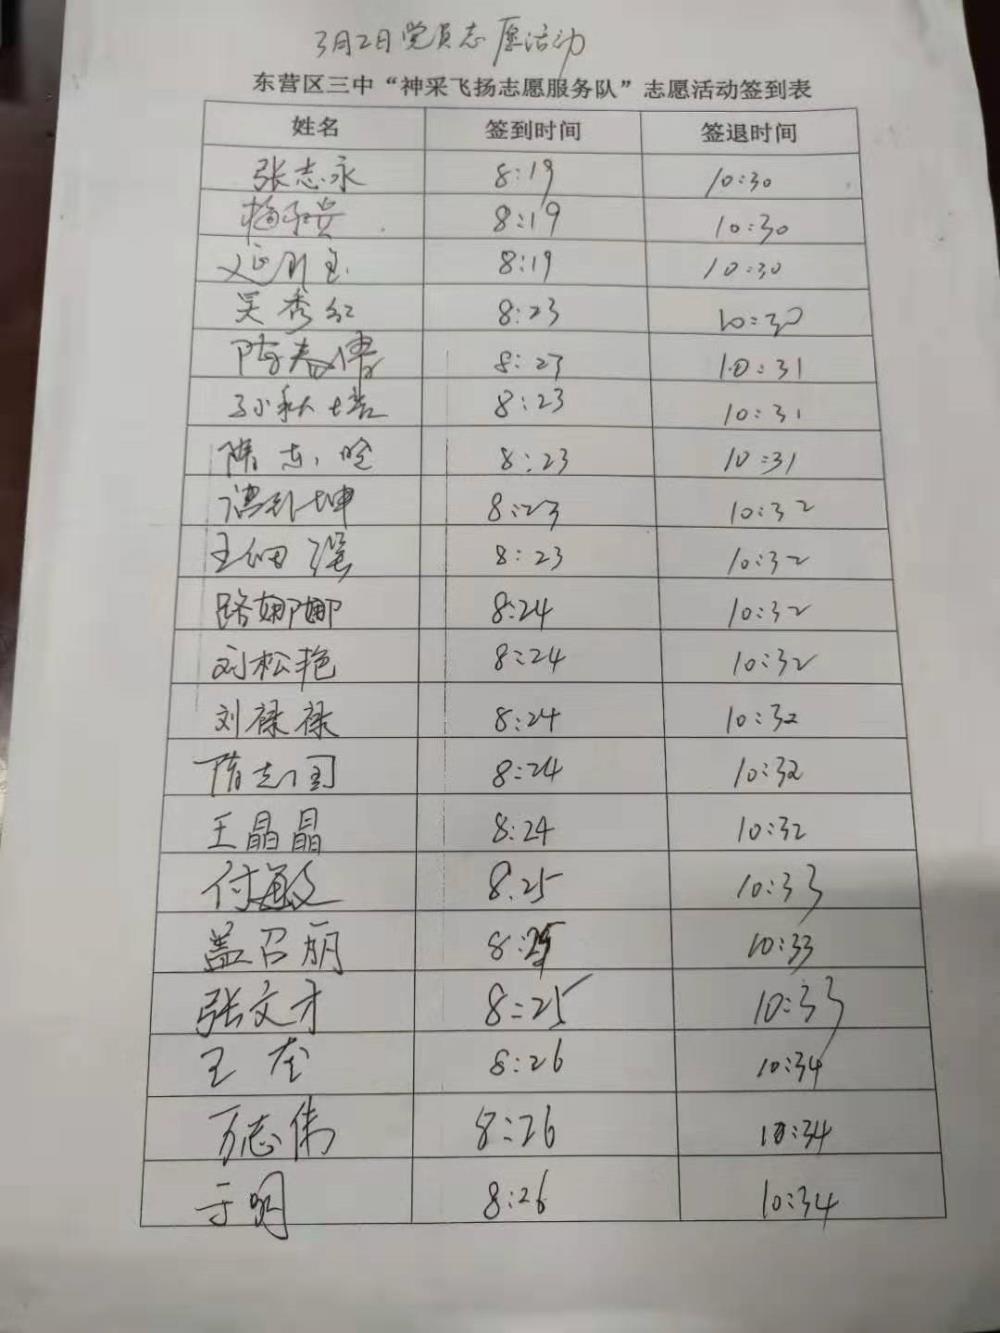 3月2日党员志愿活动
东营区三中“神采飞扬志愿服务队”志愿活动签到表
姓名 签到时间 签退时间
张志永 8:19 10:30
8:19 10:30
8:19 10:30
吴秀红 8:23 10:30
陈春倩 8:23 10:31
孙秋培 8:23 10:31
隋志 8:23 10:31
坤 8:23 10:32
王细强 8:23 10:32
路娜娜 8:24 10:32
刘松艳 8:24 10:32
刘禄禄 8:24 10:32
隋志国 8:24 10:32
王晶晶 8:24 10:32
付敏 8.25 10:33
盖召丽 8:25 10:33
张文才 8:25 10:33
王奎 8:26 10:34
万志伟 8:26 10:34
于明 8:26 10:34